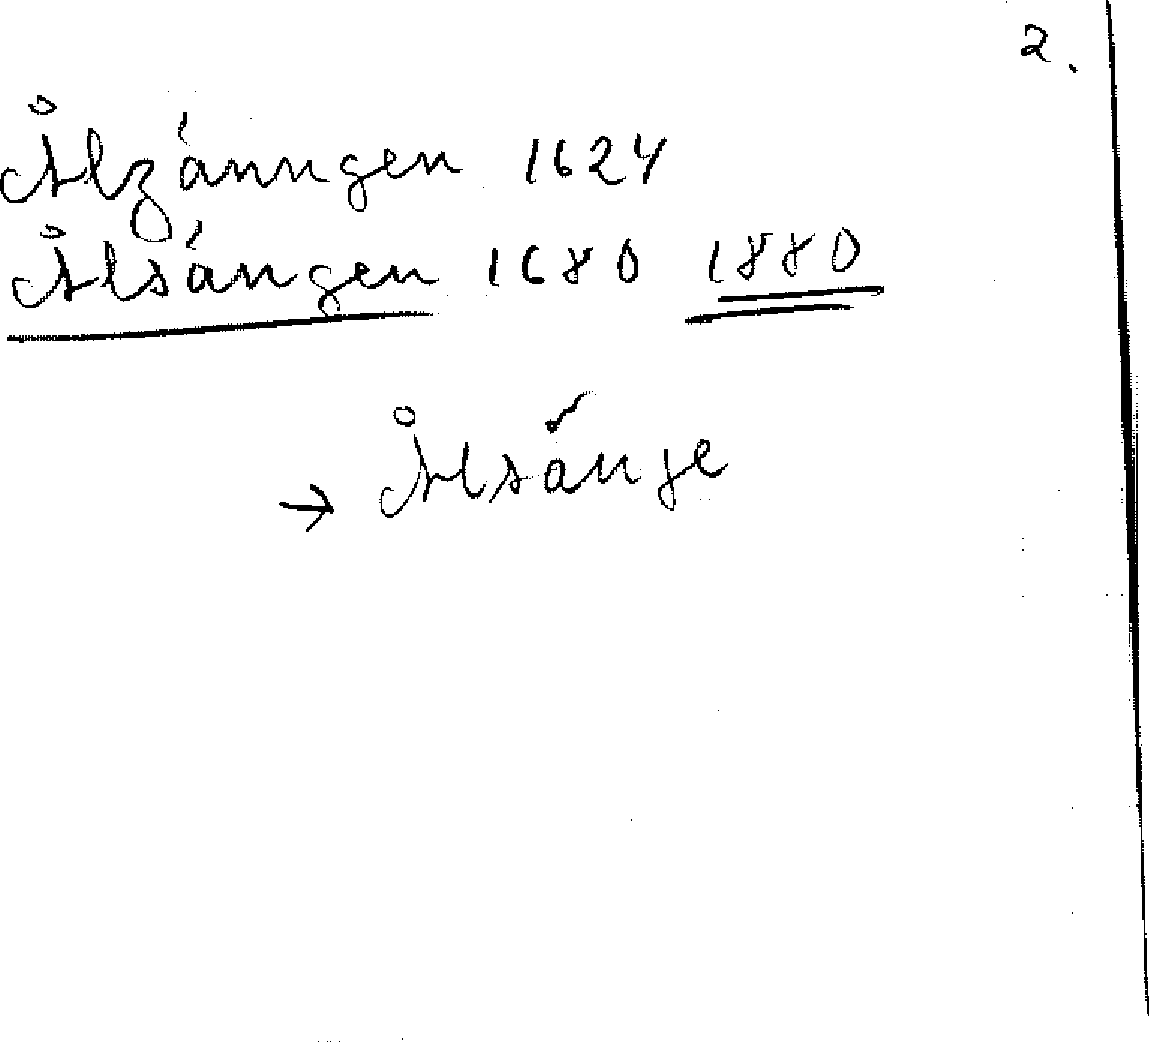 2.
Ålzánngen 1624
Ålsángen 1680 1880
→ Ålsánge